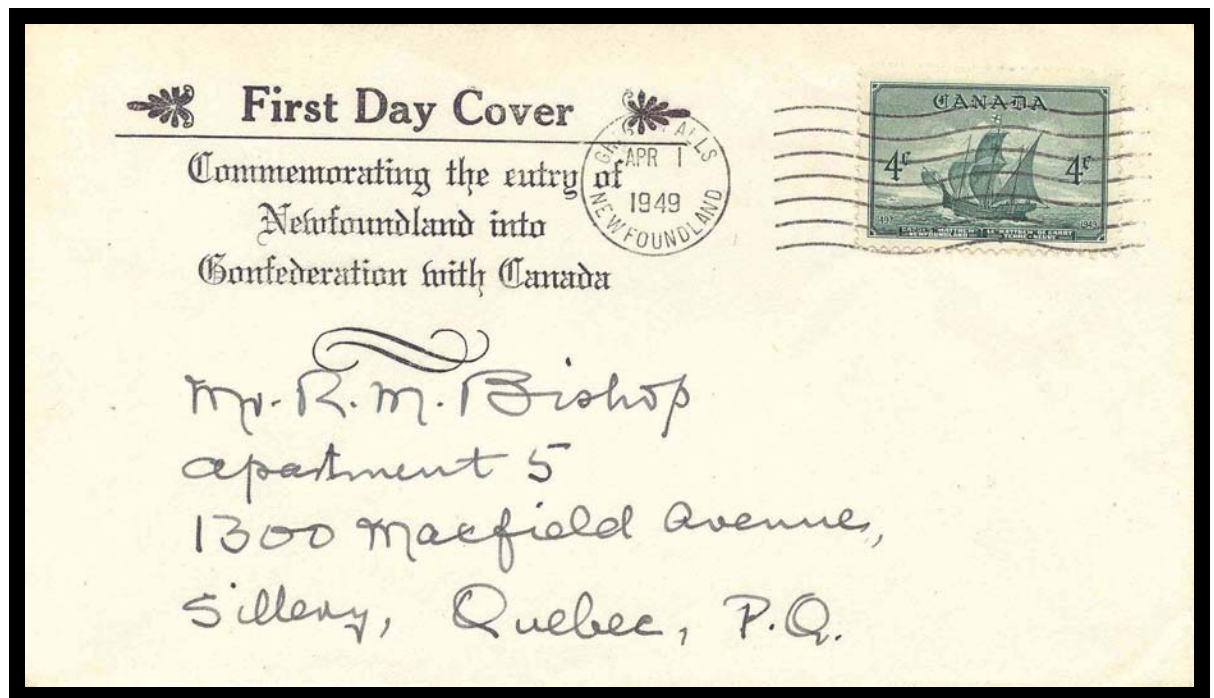 First Day Cover
Commemorating the entry of
Newfoundland into
Confederation with Canada
APR 1
1949
NEWFOUNDLAND
CANADA
4c 4c
1497 1949
Mr. R. M. Bishop
apartment 5
1300 Macfield Avenue,
Sillery, Quebec, P.Q.